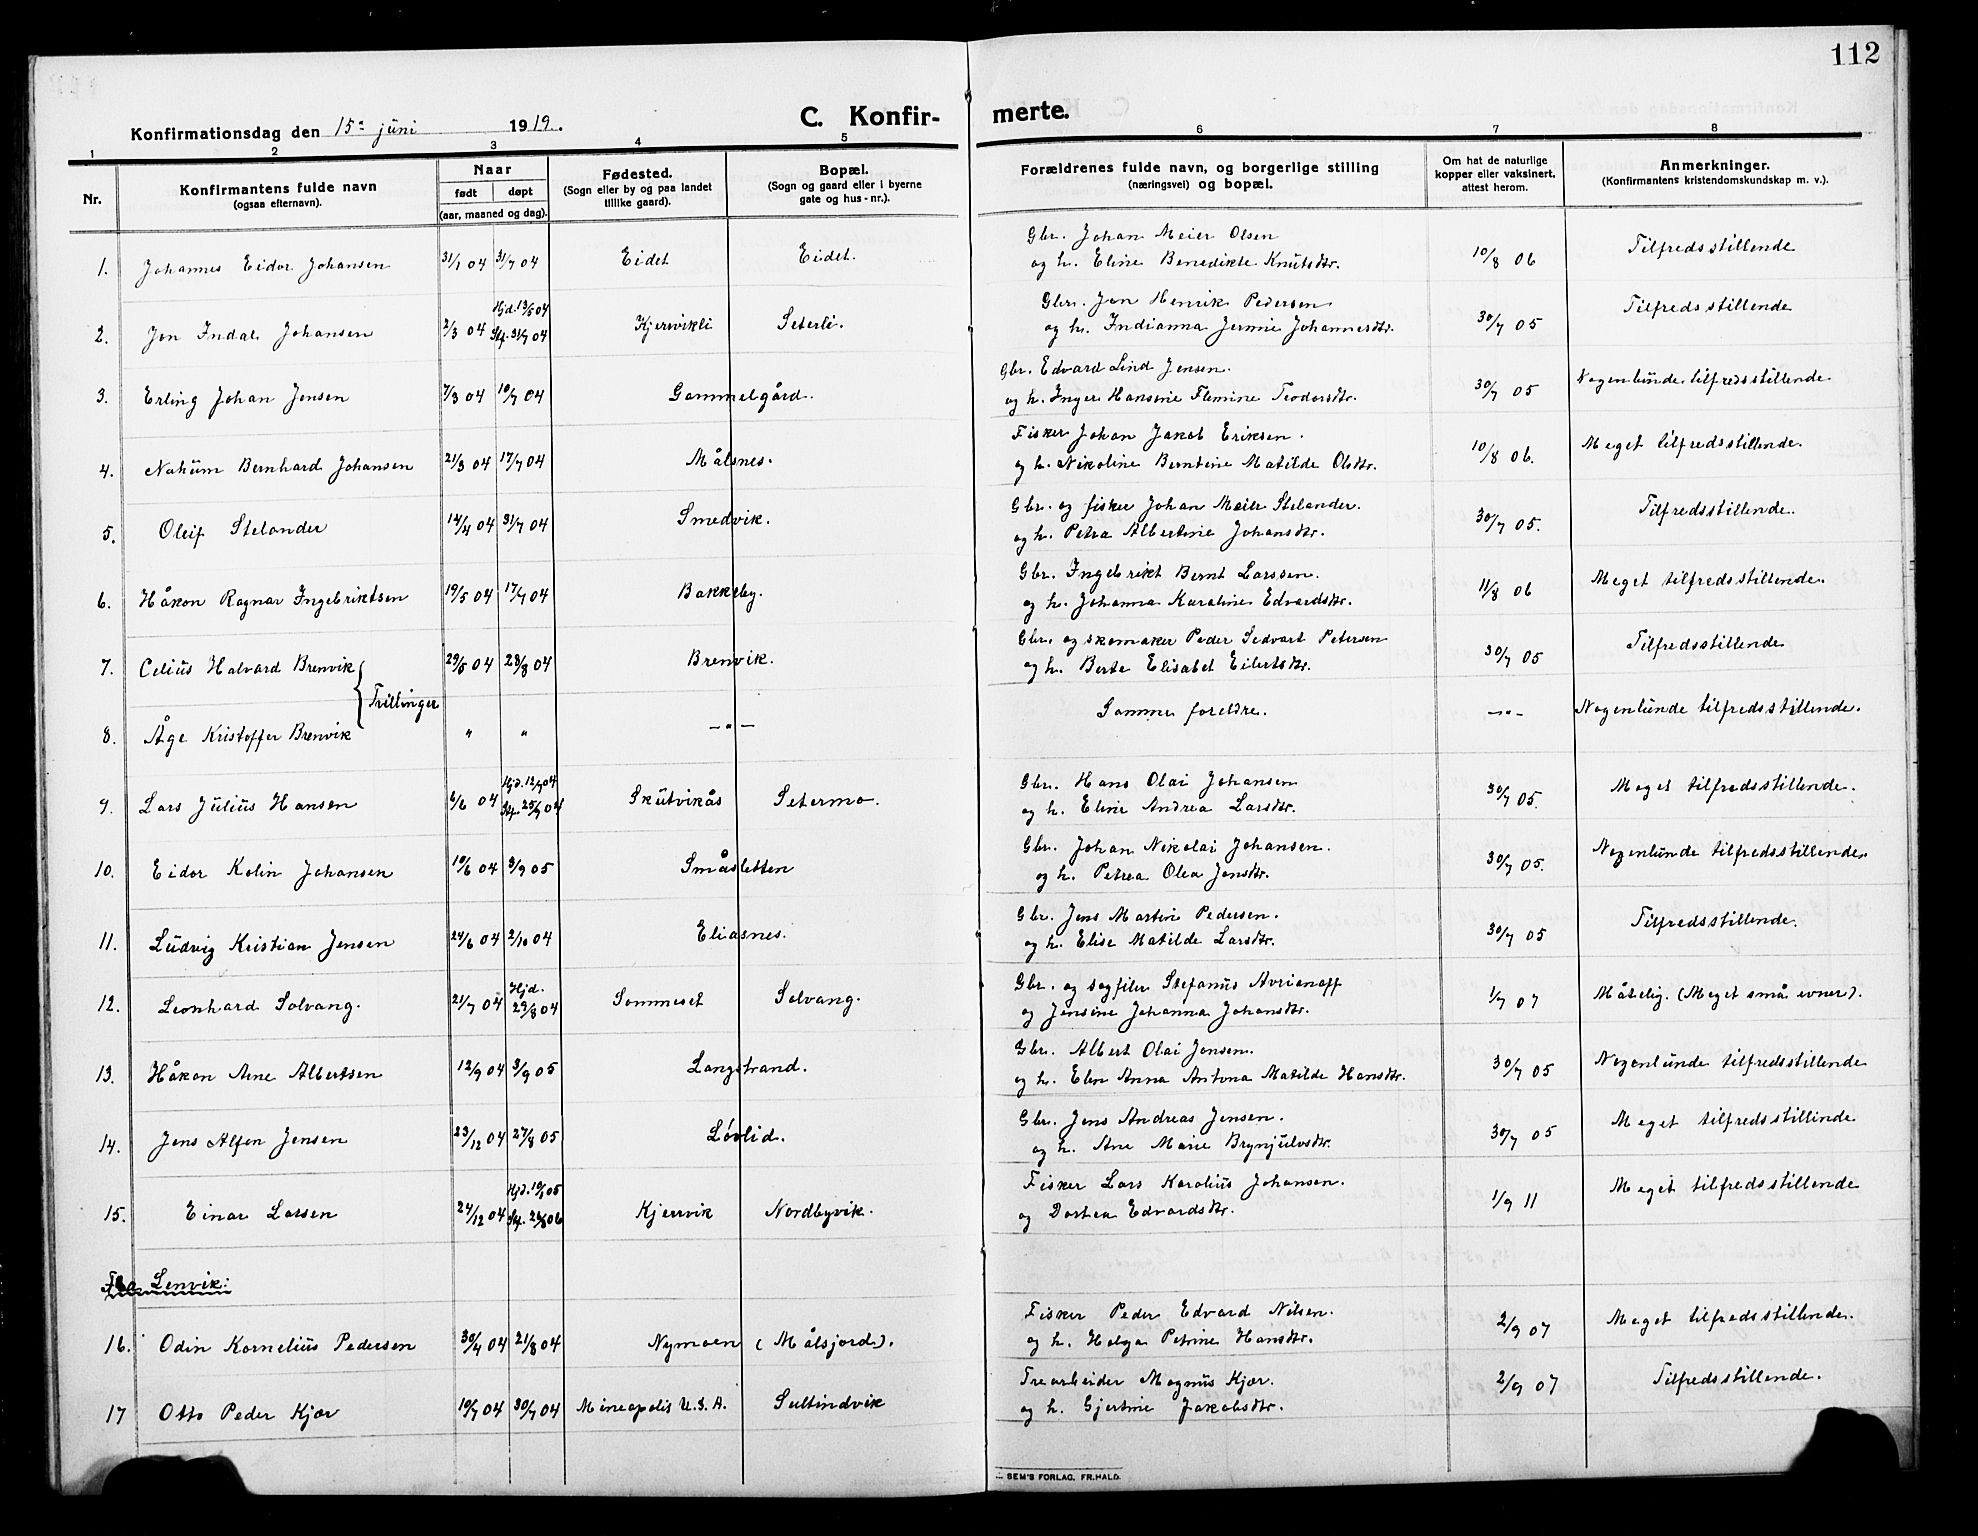 112
Konfirmationsdag den 15ᵃ juni 1919.
C. Konfir-
merte.
1 2 3 4 5 6 7 8
Nr.
Konfirmantens fulde navn
(ogsaa efternavn).
Naar
født døpt
(aar, maaned og dag).
Fødested.
(Sogn eller by og paa landet
tillike gaard).
Bopæl.
(Sogn og gaard eller i byerne
gate og hus-nr.).
Forældrenes fulde navn, og borgerlige stilling
(næringsvei) og bopæl.
Om hat de naturlige
kopper eller vaksinert,
attest herom.
Anmerkninger.
(Konfirmantens kristendomskundskap m. v.).
1. Johannes Eidor Johansen 31/1 04 31/7 04 Eidet Eidet. Gbr. Johan Meier Olsen
og h. Eline Benedikte Knutsdtr. 10/8 06 Tilfredsstillende
2. Jon Indal Johansen 2/3 04 Hjd. 13/5 04
Stf. 31/7 04 Kjervikli Seterli. Gbr. Jon Henrik Pedersen
og h. Indianna Jermie Johannesdtr. 30/7 05 Tilfredsstillende
3. Erling Johan Jensen 7/3 04 10/7 04 Gammelgård. Gbr. Edvard Lind Jensen.
og h. Inger Hansine Flemine Teodorsdtr. 30/7 05 Nogenlunde tilfredsstillende
4. Nahum Bernhard Johansen 21/3 04 17/7 04 Målsnes. Fisker Johan Jakob Eriksen.
og h. Nikoline Berntine Matilde Olsdtr. 10/8 06. Meget tilfredsstillende.
5. Oleif Stelander 14/4 04 31/7 04 Smedvik. Gbr. og fisker Johan Meier Stelander.
og h. Petra Albertine Johansdtr. 30/7 05. Tilfredsstillende.
6. Håkon Ragnar Ingebriktsen 19/5 04 17/7 04 Bakkeby. Gbr. Ingebrikt Bernt Larssen.
og h. Johanna Karoline Edvardsdtr. 11/8 06 Meget tilfredsstillende.
7. Celius Halvard Brenvik 29/5 04 28/8 04 Brenvik. Gbr. og skomaker Peder Sedvart Petersen
og h. Berte Elisabet Eilertsdtr. 30/7 05 Tilfredsstillende
Trillinger
8. Åge Kristoffer Brenvik " " —"— Samme foreldre. —"— Nogenlunde tilfredsstillende.
9. Lars Julius Hansen 6/6 04 Hjd. 12/7 04
Stf. 25/9 04 Skutvikås Setermo. Gbr. Hans Olai Johansen
og h. Eline Andrea Larsdtr. 30/7 05. Meget tilfredsstillende.
10. Eidor Kolin Johansen 10/6 04 3/9 05 Småsletten Gbr. Johan Nikolai Johansen.
og h. Petrea Olea Jensdtr. 30/7 05. Nogenlunde tilfredsstillende.
11. Ludvig Kristian Jensen 24/6 04 2/10 04 Eliasnes. Gbr. Jens Martin Pedersen.
og h. Elise Matilde Larsdtr. 30/7 05 Tilfredsstillende.
12. Leonhard Solvang. 21/7 04 Hjd.
23/8 04 Sommeset Solvang. Gbr. og sagfiler Stefanus
og Jensine Johanna Johansdtr. 1/7 07 Måtelig. (Meget små evner).
13. Håkon Arne Albertsen 12/9 04 3/9 05 Langstrand. Gbr. Albert Olai Jensen.
og h. Elen Anna Antona Matilde Hansdtr. 30/7 05 Nogenlunde tilfredsstillende
14. Jens Alfon Jensen 23/12 04 27/8 05 Løvlid. Gbr. Jens Andreas Jensen.
og h. Ane Marie Brynjulvsdtr. 30/7 05 Meget tilfredsstillinde
15. Einar Larsen 24/12 04 Hjd. 05
Stf. 06 Kjervik Nordbyvik. Fisker Lars Karolius Johansen.
og Dortea Edvardsdtr. 1/9 11 Meget tilfredsstillende
Fra Lenvik:
16. Odin Kornelius Pedersen 30/4 04 21/8 04 Nymoen (Målsjord). Fisker Peder Edvard Nilsen.
og h. Helga Petrine Hansdtr. 2/9 07 Meget tilfredsstillende.
17 Otto Peder Kjær 10/7 04 30/7 04 Mineapolis U.S.A. Sultindvik Trearbeider Magnus Kjær.
og h. Gjertine Jakobsdtr. 2/9 07 Tilfredsstillende.
SEM'S FORLAG, FR.HALD.